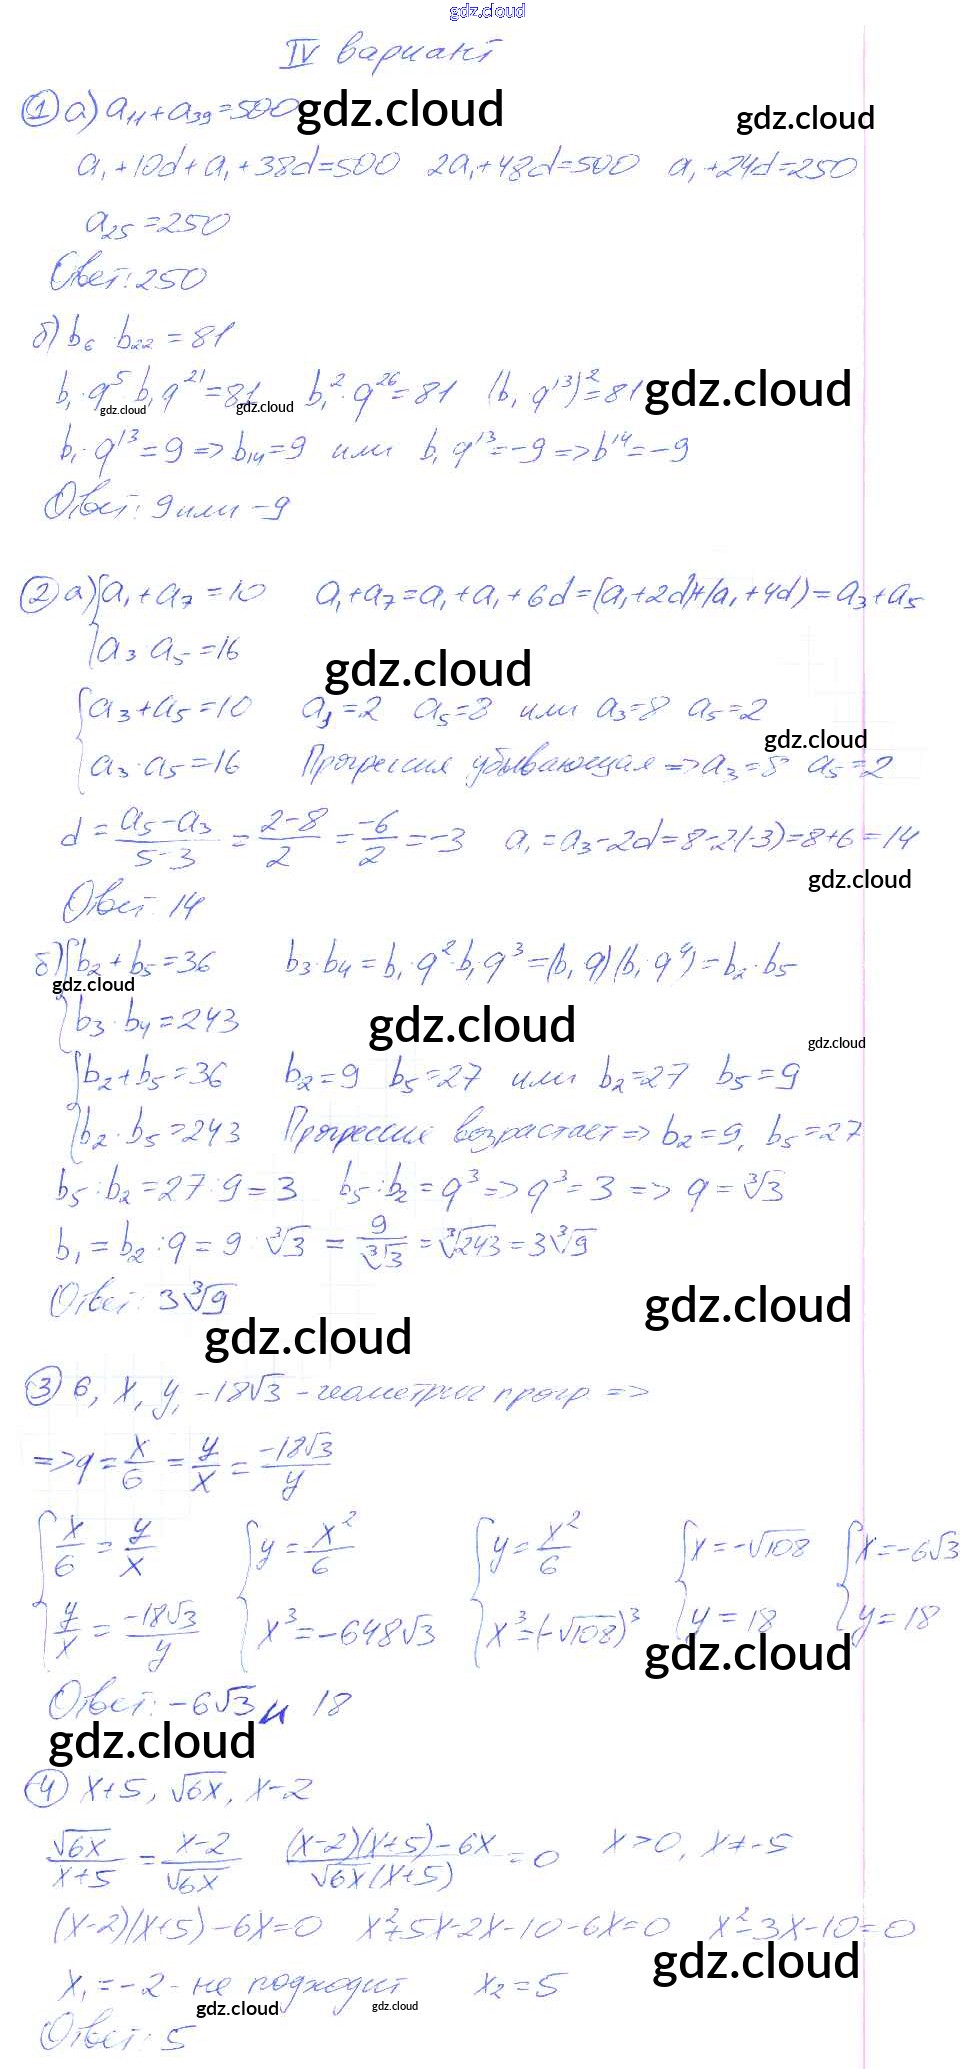 gdz.cloud
IV вариант
① а) a₁₁+a₃₉=500 gdz.cloud gdz.cloud
a₁+10d+a₁+38d=500 2a₁+48d=500 a₁+24d=250
a₂₅=250
Ответ: 250
б) b₆ · b₂₂ = 81
b₁·q⁵·b₁q²¹=81 b₁²·q²⁶=81 (b₁q¹³)²=81 gdz.cloud
gdz.cloud gdz.cloud
b₁·q¹³=9=>b₁₄=9 или b₁q¹³=-9=>b¹⁴=-9
Ответ: 9 или -9
② а) {a₁+a₇=10 a₁+a₇=a₁+a₁+6d=(a₁+2d)+(a₁+4d)=a₃+a₅
a₃·a₅=16 gdz.cloud
{a₃+a₅=10 a₃=2 a₅=8 или a₃=8 a₅=2
gdz.cloud
a₃·a₅=16 Прогрессия убывающая => a₃=8 a₅=2
d = (a₅-a₃)/(5-3) = (2-8)/2 = -6/2 = -3 a₁=a₃-2d=8-2(-3)=8+6=14
gdz.cloud
Ответ: 14
б) {b₂+b₅=36 b₃·b₄=b₁·q²·b₁q³=(b₁q)(b₁·q⁴)=b₂·b₅
gdz.cloud
b₃·b₄=243 gdz.cloud gdz.cloud
{b₂+b₅=36 b₂=9 b₅=27 или b₂=27 b₅=9
b₂·b₅=243 Прогрессия возрастает => b₂=9, b₅=27
b₅:b₂=27:9=3 b₅:b₂=q³=>q³=3=>q=∛3
b₁=b₂:q=9:∛3 = 9/∛3 = ∛243 = 3∛9
Ответ: 3∛9 gdz.cloud
gdz.cloud
③ 6, x, y, -18√3 - геометрич прогр =>
=>q = x/6 = y/x = -18√3/y
{x/6 = y/x {y = x²/6 {y = x²/6 {x=-√108 {x=-6√3
y/x = -18√3/y x³=-648√3 x³=(-√108)³ y=18 y=18
gdz.cloud
Ответ: -6√3 и 18
gdz.cloud
④ x+5, √6x, x-2
√6x/(x+5) = (x-2)/√6x ((x-2)(x+5)-6x)/(√6x(x+5)) = 0 x>0, x≠-5
(x-2)(x+5)-6x=0 x²+5x-2x-10-6x=0 x²-3x-10=0
gdz.cloud
x₁=-2 - не подходит x₂=5
gdz.cloud gdz.cloud
Ответ: 5